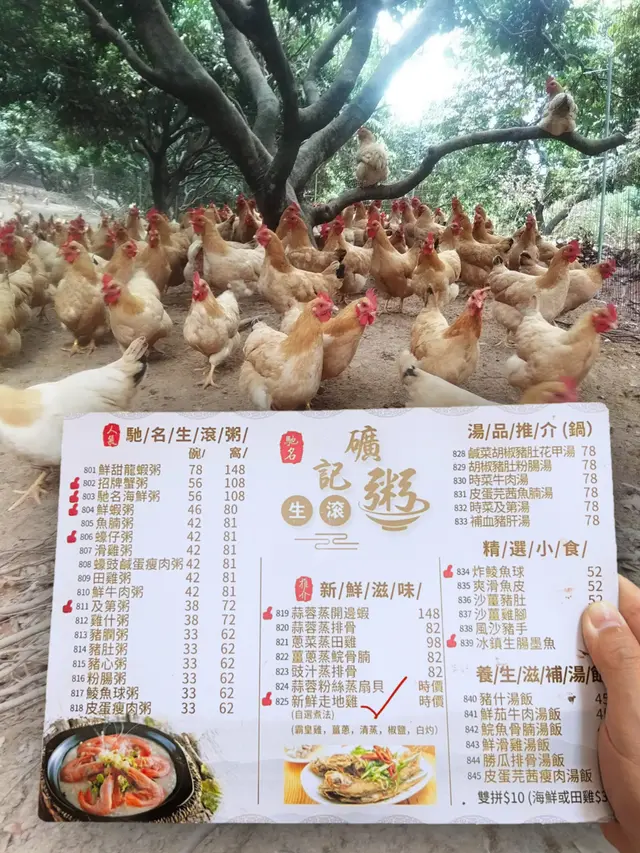 人氣 馳/名/生/滾/粥/
碗/ 窩/
801 鮮甜龍蝦粥 78 148
802 招牌蟹粥 56 108
803 馳名海鮮粥 56 108
804 鮮蝦粥 46 80
805 魚腩粥 42 81
806 蠔仔粥 42 81
807 滑雞粥 42 81
808 蠔豉鹹蛋瘦肉粥 42 81
809 田雞粥 42 81
810 鮮牛肉粥 42 81
811 及第粥 38 72
812 雞什粥 38 72
813 豬膶粥 33 62
814 豬肚粥 33 62
815 豬心粥 33 62
816 粉腸粥 33 62
817 鯪魚球粥 33 62
818 皮蛋瘦肉粥 33 62
馳名
礦記粥
生滾
推介 新/鮮/滋/味/
819 蒜蓉蒸開邊蝦 148
820 蒜蓉蒸排骨 82
821 蔥菜蒸田雞 98
822 薑蔥蒸鯇骨腩 82
823 豉汁蒸排骨 82
824 蒜蓉粉絲蒸扇貝 時價
825 新鮮走地雞 時價
(自選煮法)
(霸皇雞, 薑蔥, 清蒸, 椒鹽, 白灼)
湯/品/推/介 (鍋)
828 鹹菜胡椒豬肚花甲湯 78
829 胡椒豬肚粉腸湯 78
830 時菜牛肉湯 78
831 皮蛋芫茜魚腩湯 78
832 時菜及第湯 78
833 補血豬肝湯 78
精/選/小/食/
834 炸鯪魚球 52
835 爽滑魚皮 52
836 沙薑豬肚 52
837 沙薑雞腳
838 風沙豬手
839 冰鎮生腸墨魚
養/生/滋/補/湯/飯
840 豬什湯飯
841 鮮茄牛肉湯飯
842 鯇魚骨腩湯飯
843 鮮滑雞湯飯
844 勝瓜排骨湯飯
845 皮蛋芫茜瘦肉湯飯
雙拼$10 (海鮮或田雞$